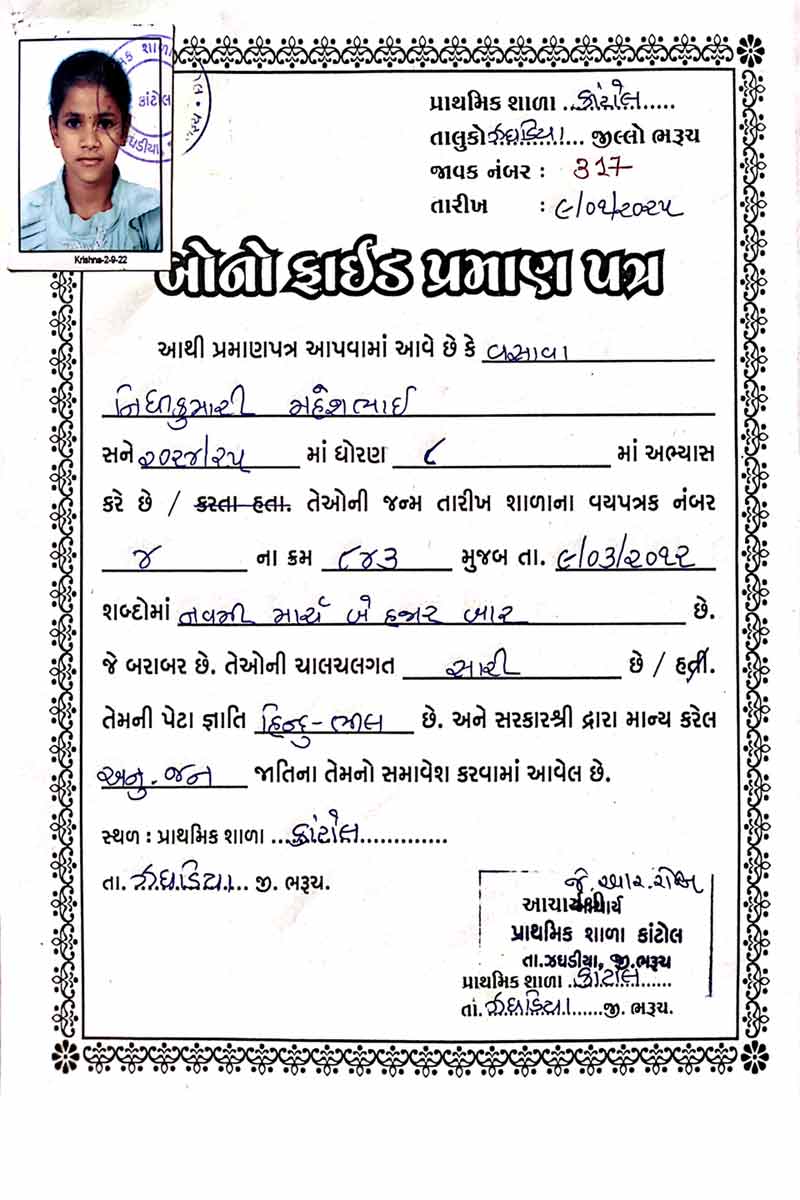 પ્રાથમિક શાળા ..કાંટોલ.....
તાલુકો ઝઘડિયા.... જીલ્લો ભરૂચ
જાવક નંબર : 317
તારીખ : ૯/૦૧/૨૦૨૫
ક શાળા
કાંટોલ
ઘડીયા
Krishna-2-9-22
બોનો ફાઈડ પ્રમાણ પત્ર
આથી પ્રમાણપત્ર આપવામાં આવે છે કે વસાવા
નિધીકુમારી મહેશભાઈ
સને ૨૦૨૪/૨૫ માં ધોરણ ૮ માં અભ્યાસ
કરે છે / કરતા હતા. તેઓની જન્મ તારીખ શાળાના વયપત્રક નંબર
૪ ના ક્રમ ૮૪૩ મુજબ તા. ૯/૦૩/૨૦૧૨
શબ્દોમાં નવમી માર્ચ બે હજાર બાર છે.
જે બરાબર છે. તેઓની ચાલચલગત સારી છે / હતી.
તેમની પેટા જ્ઞાતિ હિન્દુ-ભીલ છે. અને સરકારશ્રી દ્રારા માન્ય કરેલ
અનુ.જન જાતિના તેમનો સમાવેશ કરવામાં આવેલ છે.
સ્થળ : પ્રાથમિક શાળા ...કાંટોલ.............
તા. ઝઘડિયા... જી. ભરૂચ.
જે. આર.
આચાર્યશ્રી
પ્રાથમિક શાળા કાંટોલ
તા.ઝઘડીયા, જી.ભરૂચ
પ્રાથમિક શાળા ..કાંટોલ......
તાં. ઝઘડિયા......જી. ભરૂચ.